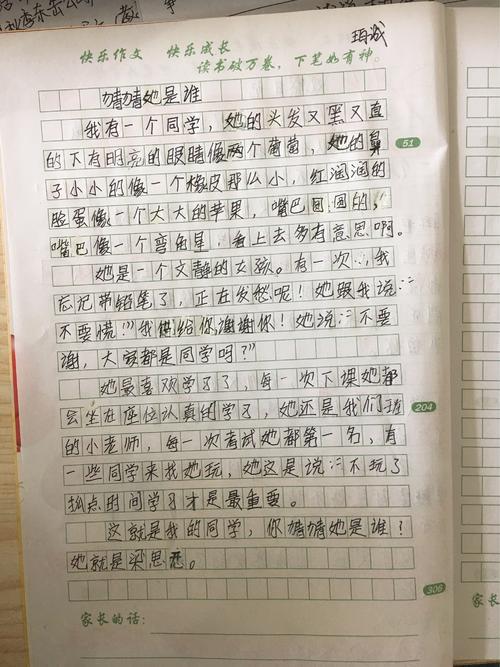 珇诚
快乐作文 快乐成长
读书破万卷，下笔如有神。
猜猜她是谁
我有一个同学，她的头发又黑又直
的下有明亮的眼睛像两个葡萄，她的鼻
子小小的像一个橡皮那么小，红润润的
脸蛋像一个大大的苹果，嘴巴回回的，
嘴巴像一个弯角星，看上去多有意思啊。
她是一个文静的女孩。有一次，我
忘记带铅笔了，正在发愁呢！她跟我说：“
不要慌！”我借给你谢谢你！她说：“不要
谢，大家都是同学吗？”
她最喜欢学习了，每一次下课她都
会坐在座位认真的学习，她还是我们班
的小老师，每一次考试她都第一名，有
一些同学来找她玩，她这是说：“不玩了
抓点时间学习才是最重要。
这就是我的同学，你猜猜她是谁？
她就是梁思。
家长的话：
51
204
306